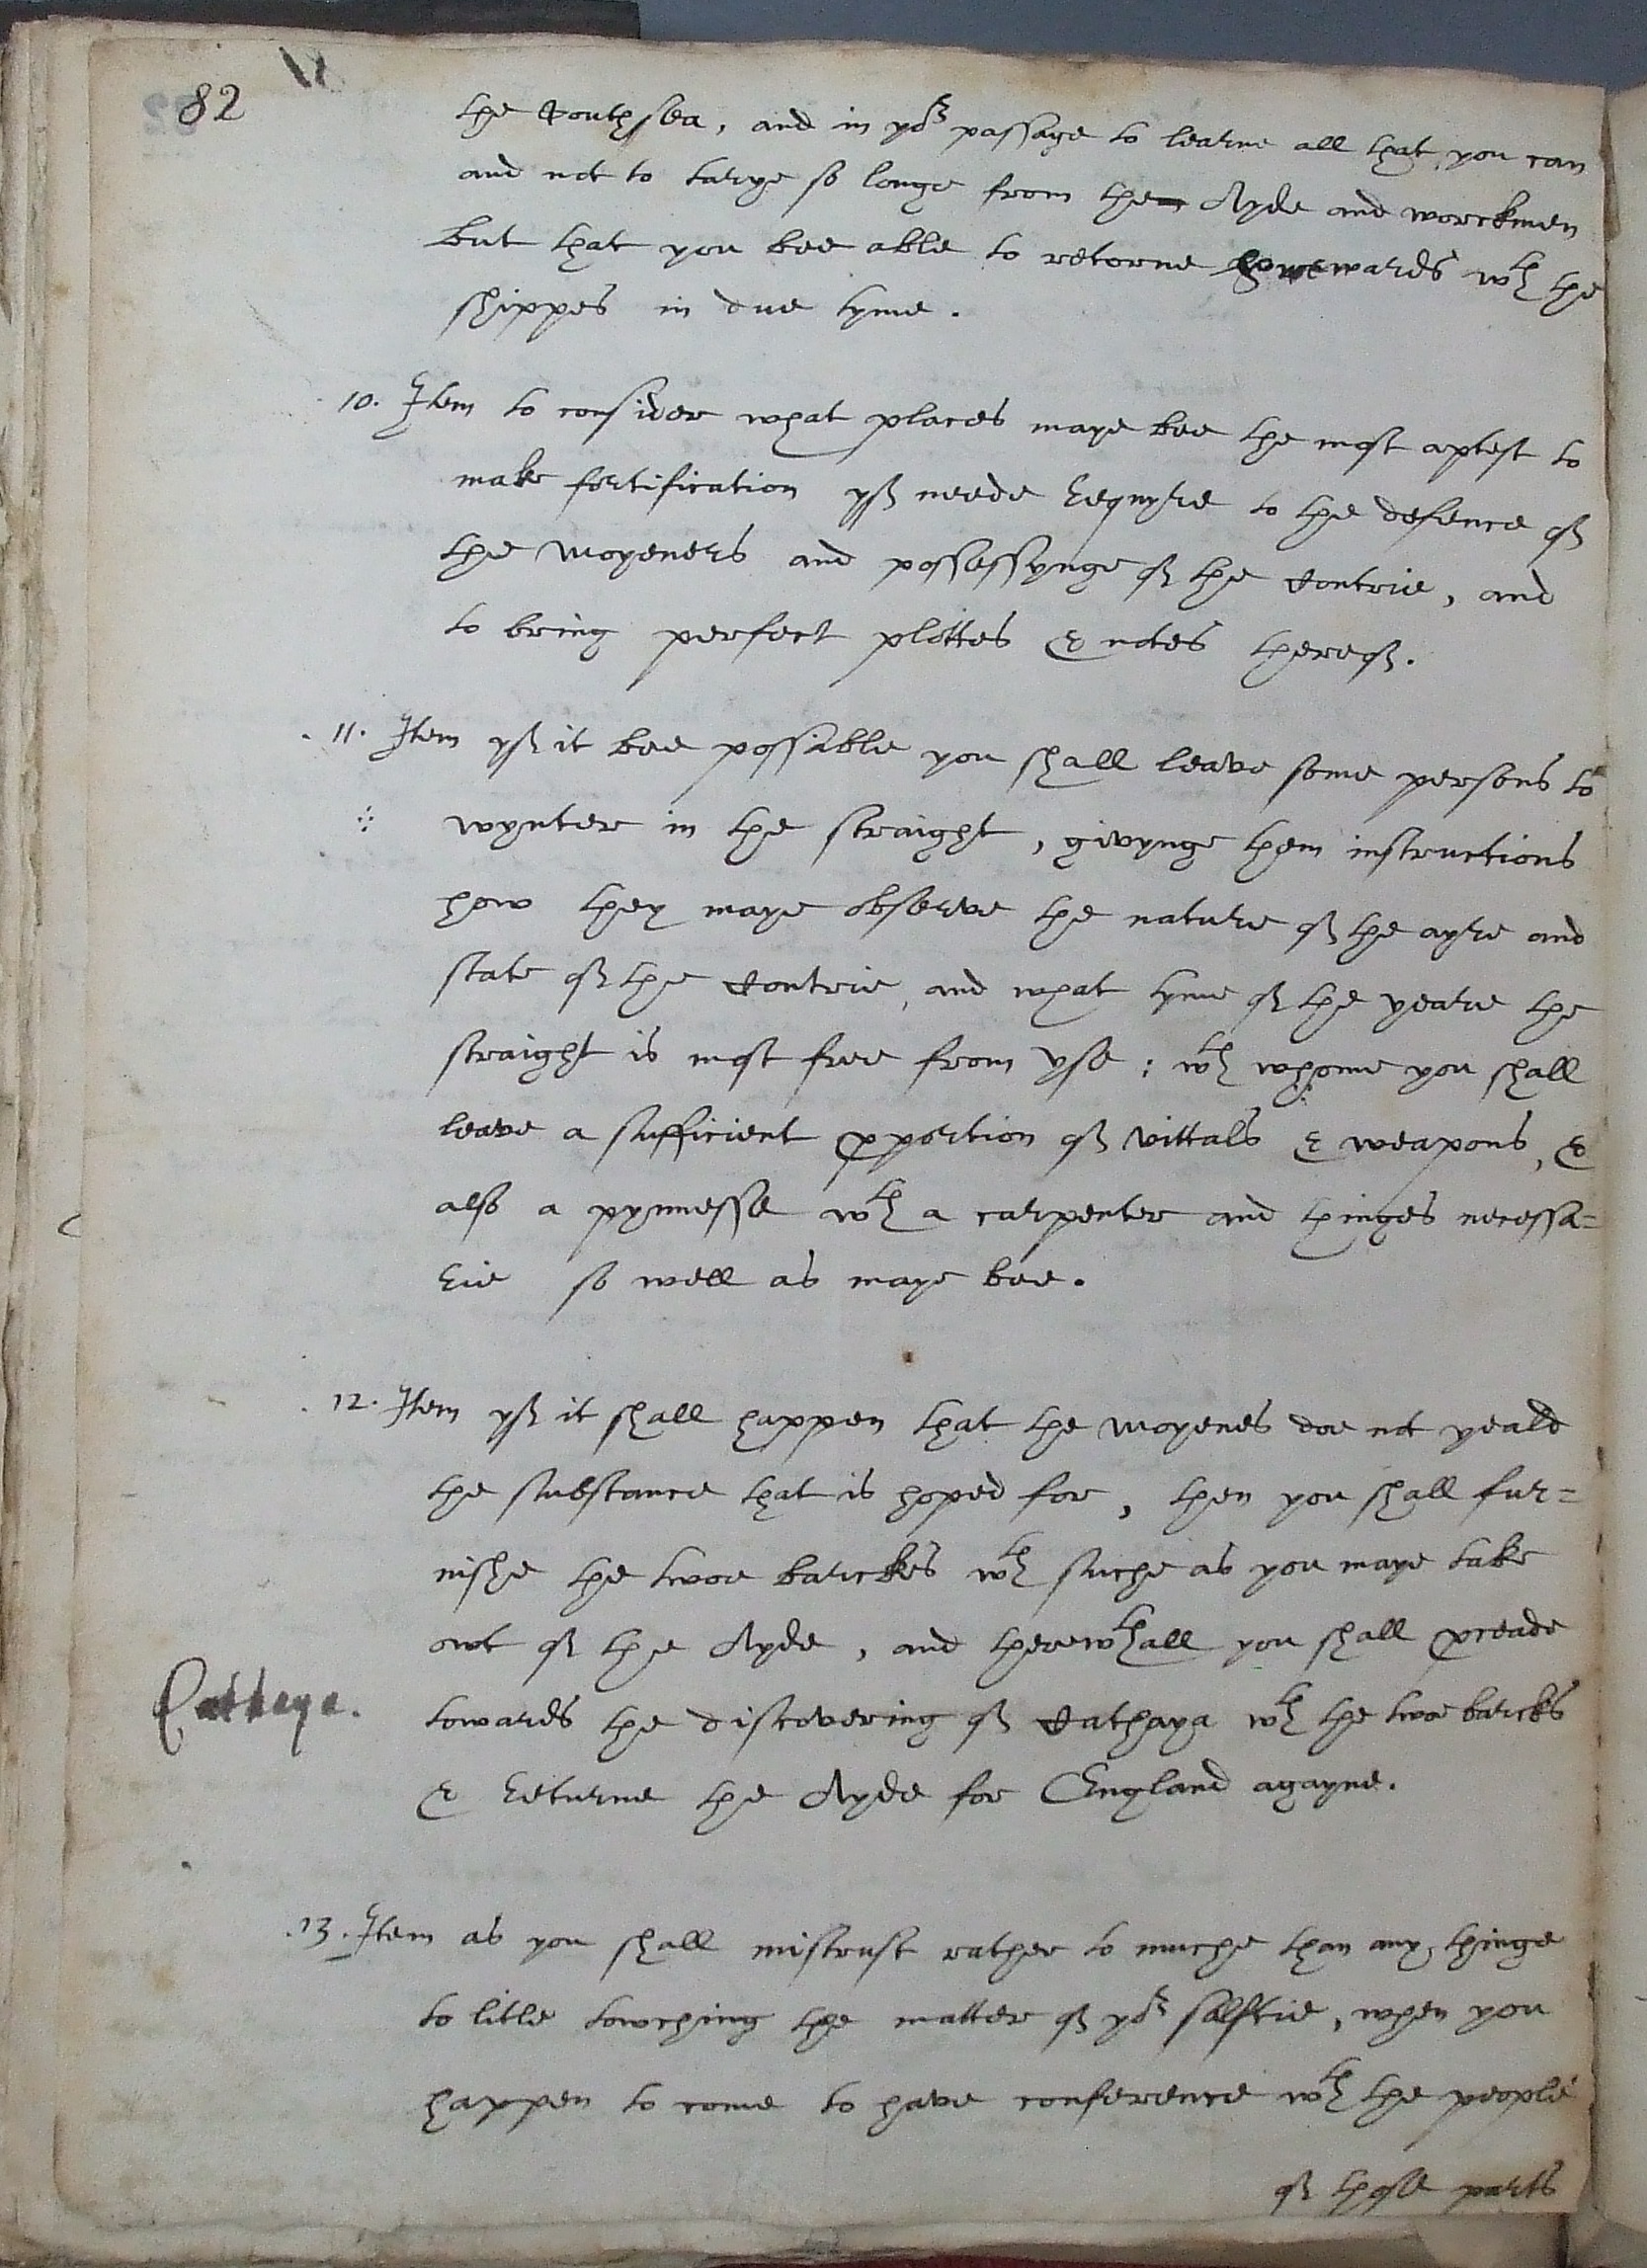 82
the South sea, and in yor passage to learne all that you can
and not to tarye so longe from the Ayde and worckmen
but that you bee able to retorne homewards wth the
shippes in due tyme.
10. Item to consider what places maye bee the most aptest to
make fortification yf neede requyre to the defence of
the moyeners and possessynge of the Contrie, and
to bring perfect plottes & notes thereof.
11. Item yf it bee possible you shall leave some persons to
wynter in the straight, givynge them instructions
how they maye observe the nature of the ayre and
state of the Contrie, and what tyme of the yeare the
straight is most free from yse: wth whome you shall
leave a sufficient pportion of vittals & weapons, &
also a pynnesse wth a carpenter and thinges necessa=
rie so well as maye bee.
12. Item yf it shall happen that the moyenes doe not yeald
the substance that is hoped for, then you shall fur=
nishe the twoe barckes wth suche as you maye take
owt of the Ayde, and therewthall you shall pceade
Cathaye.
towards the discovering of Cathaya wth the twoe barcks
& returne the Ayde for England agayne.
13. Item as you shall mistrust rather to muche than any thinge
to litle towching the matter of yor salftie, when you
happen to come to have conference wth the people
of those parts